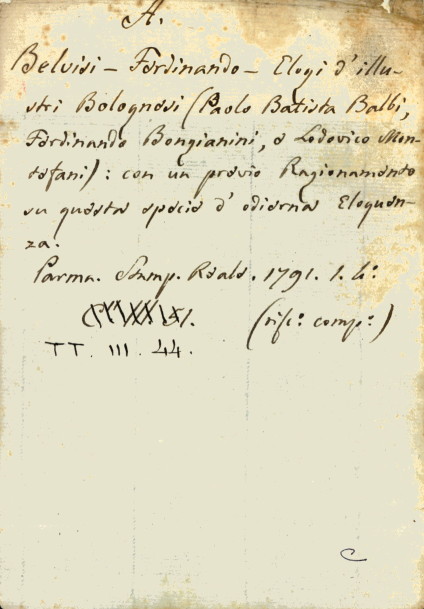 A.
Belvisi - Ferdinando - Elogi d'illu-
stri Bolognesi (Paolo Batista Balbi,
Ferdinando Bongianini, e Lodovico Mon-
tefani): con un previo Ragionamento
su questa specie d'odierna Eloquen-
za.
Parma. Stamp. Reale. 1791. 1. 4.º
(rifº. compº.)
TT. III. 44.
C